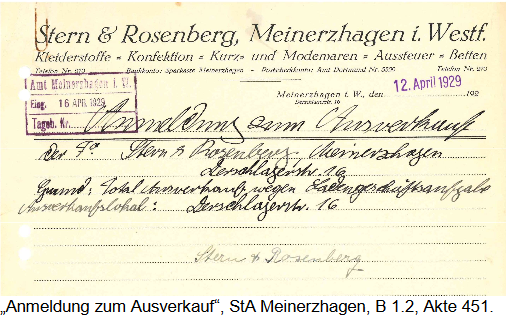 Stern & Rosenberg, Meinerzhagen i. Westf.
Kleiderstoffe = Konfektion = Kurz= und Modewaren = Aussteuer = Betten
Telefon Nr. 270 Bankkonto: Sparkasse Meinerzhagen Postscheckkonto: Amt Dortmund Nr.
Meinerzhagen i. W., den 12. April 1929 192
Derschlagerstr. 16
Amt Meinerzhagen i. W.
Eing. 16 APR. 1929
Tageb. Nr.
Anmeldung zum Ausverkauf
der Fa. Stern & Rosenberg, Meinerzhagen
Derschlagerstr. 16
Grund: Total Ausverkauf wegen Ladengeschäftsaufgabe
Ausverkaufslokal: Derschlagerstr. 16
Stern & Rosenberg
„Anmeldung zum Ausverkauf“, StA Meinerzhagen, B 1.2, Akte 451.